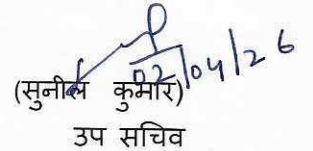 02/04/26
(सुनील कुमार)
उप सचिव